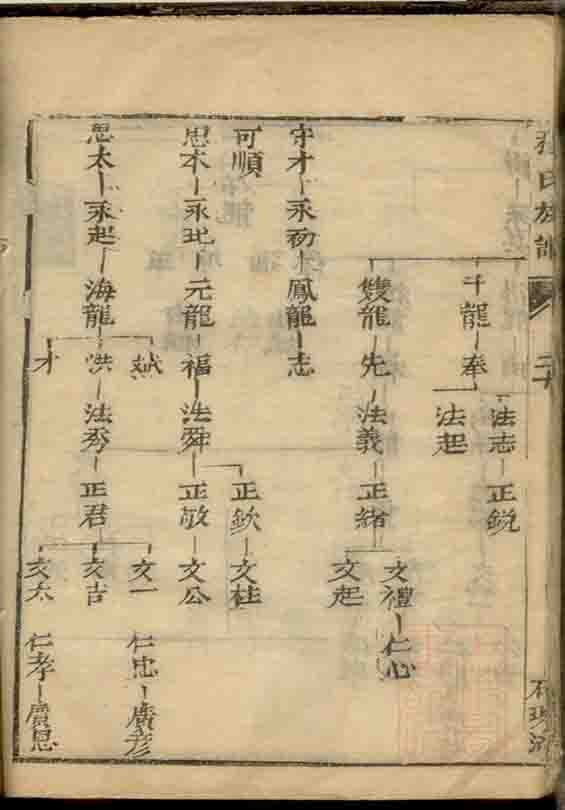 氏族譜
二十
千龍 奉 法志 正銳
法起
先 法義 正緒 文禮 仁心
文起
守才 永初 鳳龍 志
可順
正欽 文桂
思本 永圯 元龍 福 法舜 正敬 文公
思太 永起 海龍 洪 法秀 正君 文吉
斌
文一 仁忠 廣彥
才
文太 仁孝 廣恩